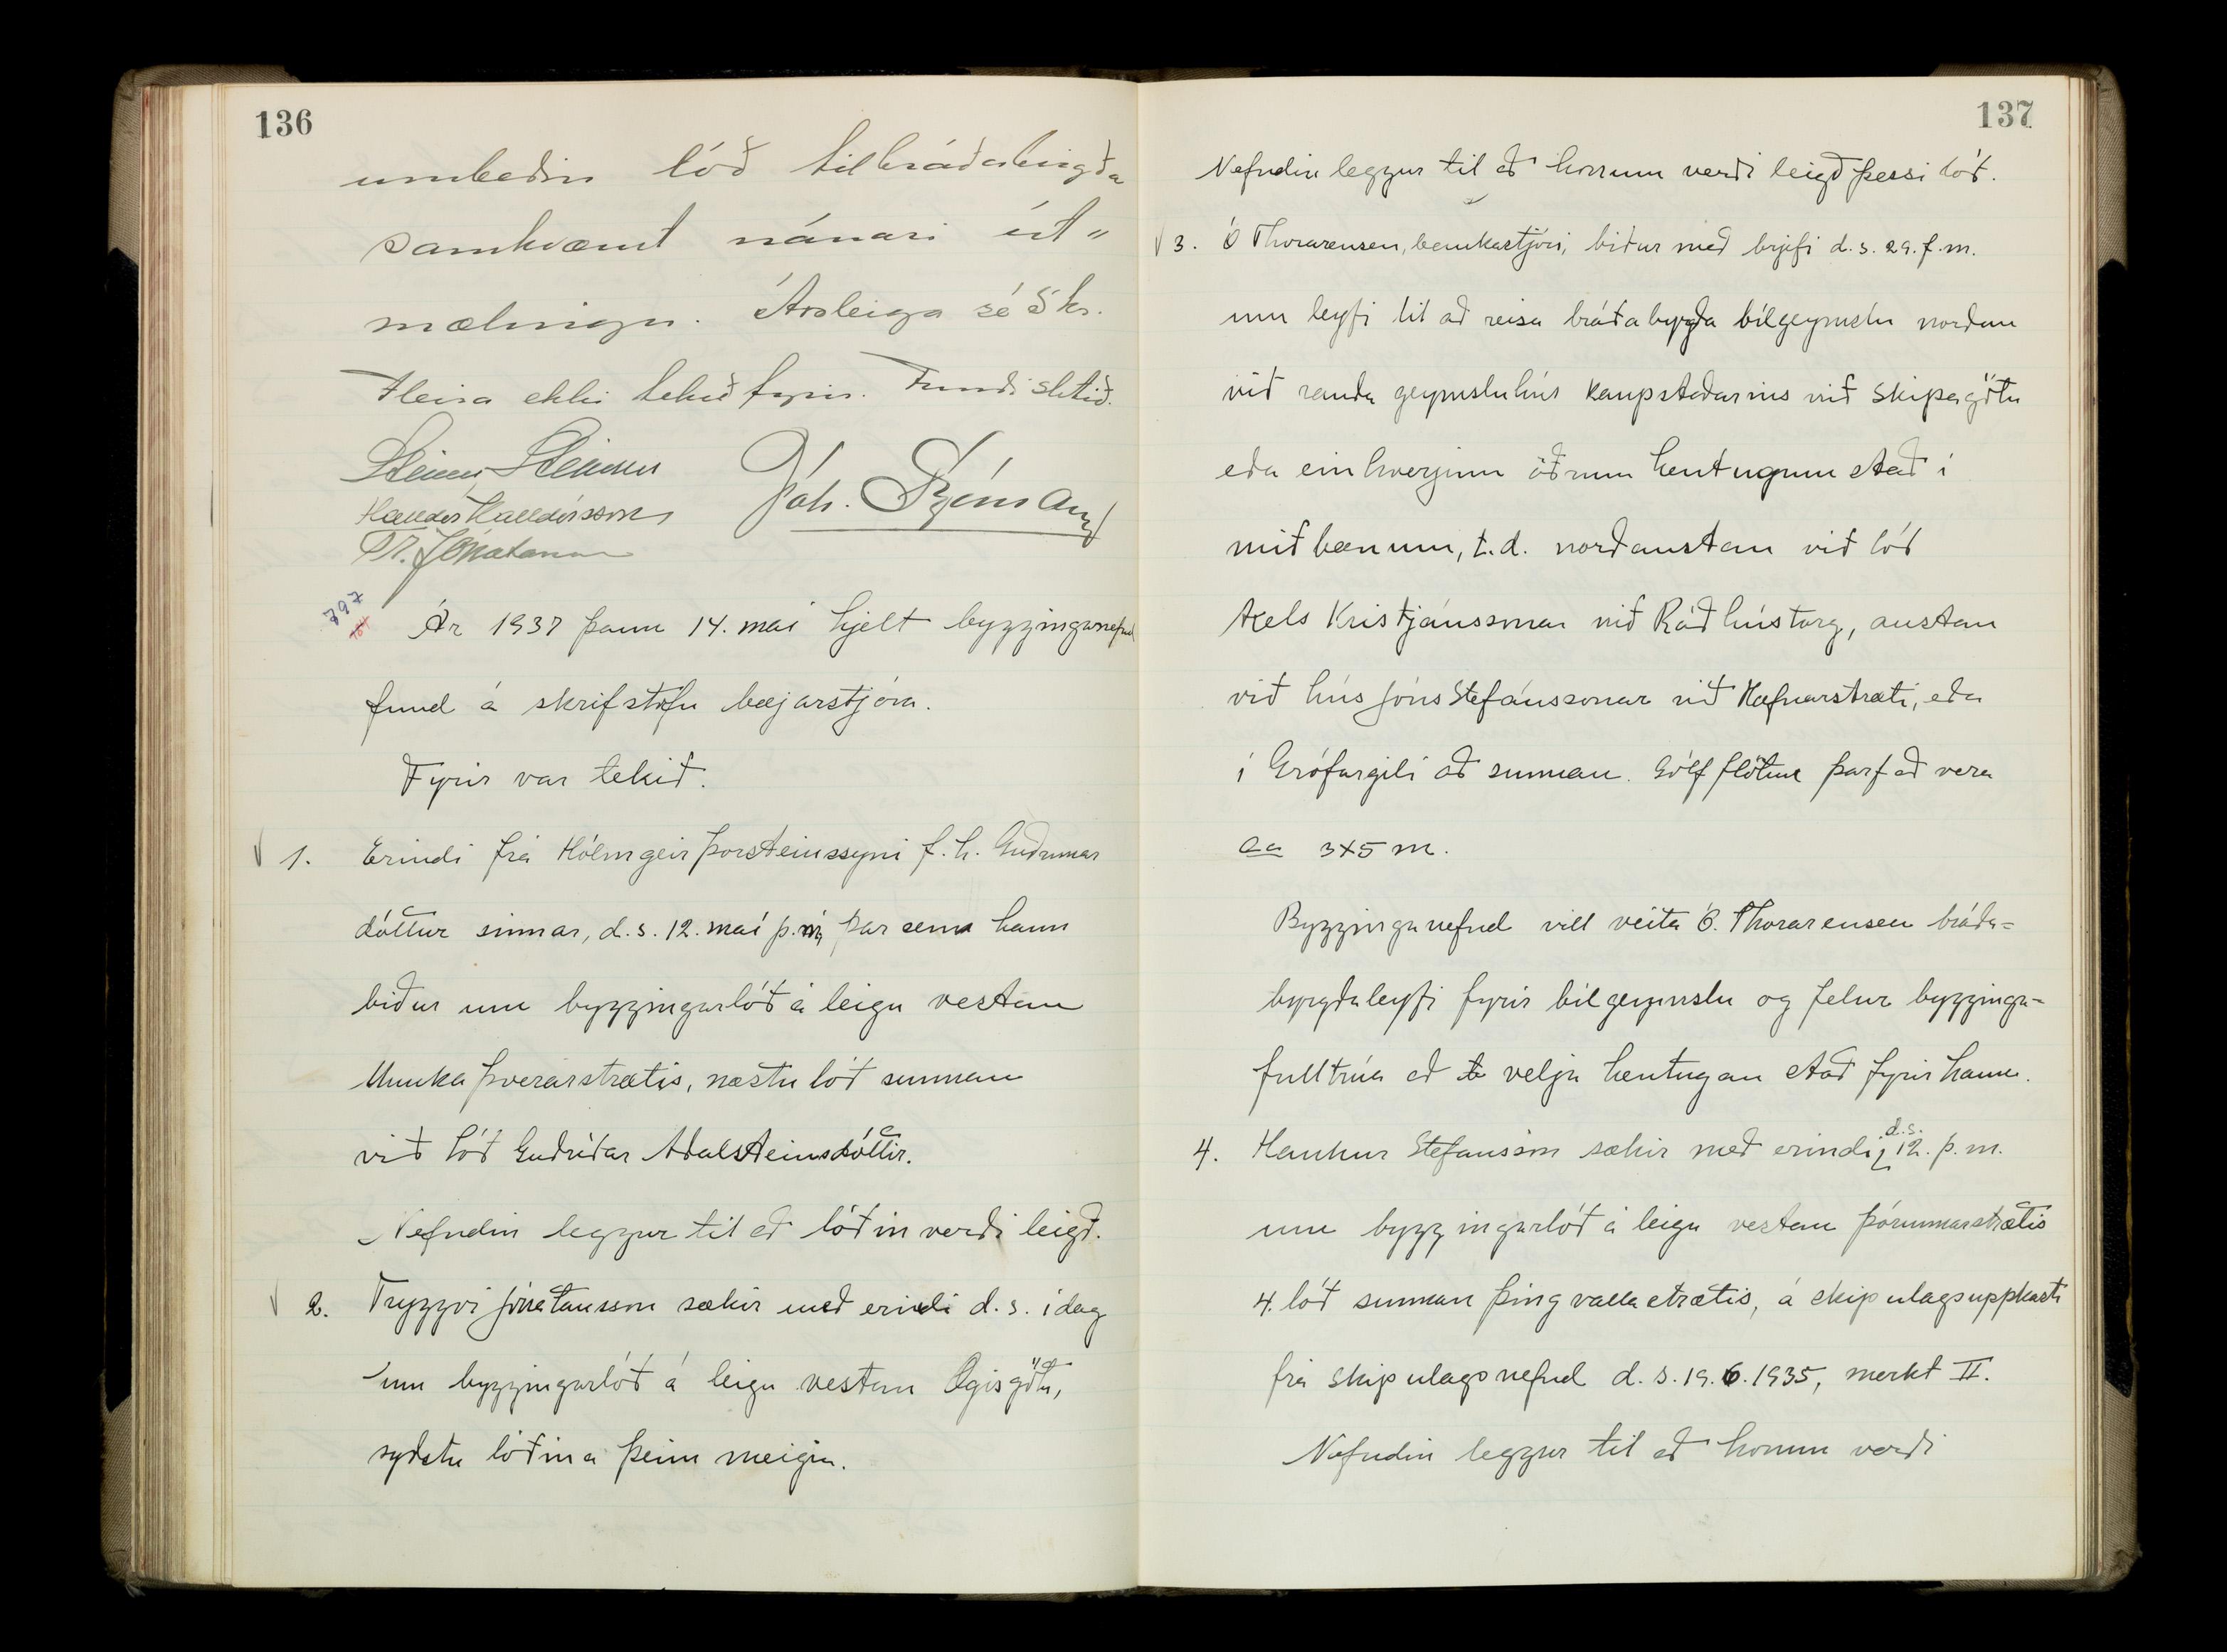 136
umbeðin lóð til bráðabirgða
samkvæmt nánari út„
mælingu. Ársleiga sé 5 kr.
Fleira ekki tekið fyrir. Fundi slitið.
Steinn Steinsen
Jóh. Frímann
Halldór Halldórsson
Tr. Jónatansson
797
Ár 1937 þann 14. maí hjelt bygginganefnd
fund á skrifstofu bæjarstjóra.
Fyrir var tekið.
1. Erindi frá Hólmgeir Þorsteinssyni f.h. Guðrúnar
dóttur sinnar, d.s. 12. maí þ.m, þar sem hann
biður um byggingarlóð á leigu vestan
Munkaþverárstrætis, næstu lóð sunnan
við lóð Guðríðar Aðalsteinsdóttir.
Nefndin leggur til að lóðin verði leigð.
2. Tryggvi Jónatansson sækir með erindi d.s. í dag
um byggingarlóð á leigu vestan Ægisgötu,
syðstu lóðina þeim meigin.
137
Nefndin leggur til að honum verði leigð þessi lóð.
3. Ó Thorarensen, bankastjóri, biður með brjefi d.s. 29. f.m.
um leyfi til að reisa bráðabyrgða bílgeymslu norðan
við rauða geymsluhús kaupstaðarins við Skipagötu
eða einhverjum öðrum hentugum stað í
miðbænum, t.d. norðaustan við lóð
Axels Kristjánssonar við Ráðhústorg, austan
við hús Jóns Stefánssonar við Hafnarstræti, eða
í Grófargili að sunnan. Gólfflötur þarf að vera
ca 3x5 m.
Bygginganefnd vill veita Ó. Thorarensen bráða=
byrgðaleyfi fyrir bílgeymslu og felur bygginga=
fulltrúa að velja hentugan stað fyrir hana.
4. Haukur Stefánsson sækir með erindi, d.s. 12. þ.m.
um byggingarlóð á leigu vestan Þórunnarstrætis
4. lóð sunnan Þingvallastrætis, á skipulagsuppkasti
frá Skipulagsnefnd d.s. 19.6.1935, merkt II.
Nefndin leggur til að honum verði